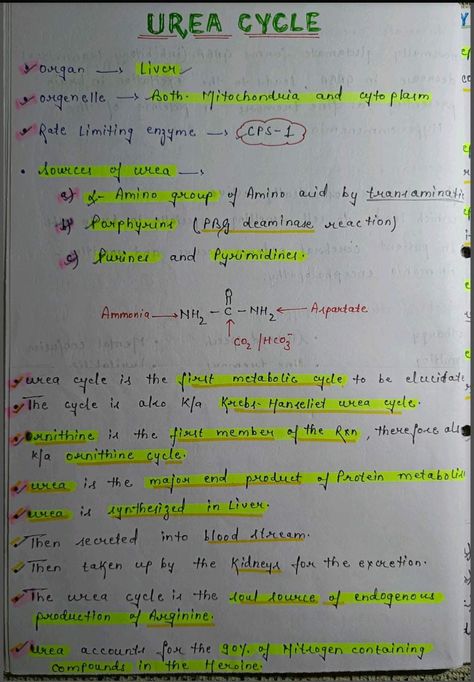 UREA CYCLE
organ → Liver
organelle → Both Mitochondria and cytoplasm
Rate Limiting enzyme → CPS-1
• Sources of urea →
a) α-Amino group of Amino acid by transaminati
b) Porphyrins (PBG deaminase reaction)
c) Purines and Pyrimidines.
O
Ammonia → NH2 - C - NH2 ← Aspartate
CO2/HCO3-
urea cycle is the first metabolic cycle to be elucidate
The cycle is also k/a Krebs-Hanseliet urea cycle.
Ornithine is the first member of the Rxn, therefore als
k/a ornithine cycle.
urea is the major end product of Protein metabolis
urea is synthesized in Liver.
Then secreted into blood stream.
Then taken up by the Kidneys for the excretion.
The urea cycle is the soul source of endogenous
production of Arginine.
urea accounts for the 90% of Nitrogen containing
compounds in the Heroine.